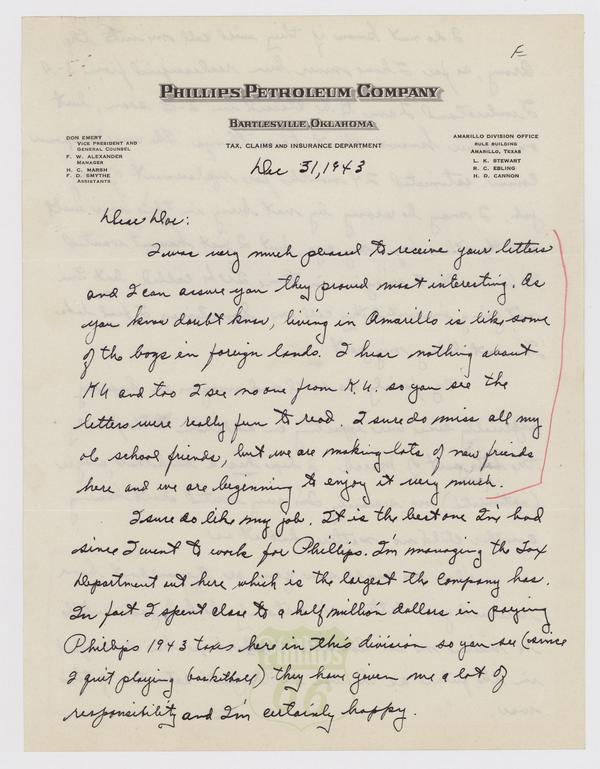 F
PHILLIPS PETROLEUM COMPANY
BARTLESVILLE, OKLAHOMA
TAX, CLAIMS AND INSURANCE DEPARTMENT
DON EMERY
VICE PRESIDENT AND
GENERAL COUNSEL
F. W. ALEXANDER
MANAGER
H. C. MARSH
F. D. SMYTHE
ASSISTANTS
AMARILLO DIVISION OFFICE
RULE BUILDING
AMARILLO, TEXAS
L. K. STEWART
R. C. EBLING
H. D. CANNON
Dec 31, 1943
Dear Doc:
I was very much pleased to receive your letters
and I can assure you they proved most interesting. As
you know doubt know, living in Amarillo is like some
of the boys in foreign lands. I hear nothing about
KU and too I see no one from K.U. so you see the
letters were really fun to read. I sure do miss all my
ole school friends, but we are making lots of new friends
here and we are beginning to enjoy it very much.
I sure do like my job. It is the best one I'm had
since I went to work for Phillips. I'm managing the Tax
Department out here which is the largest the Company has.
In fact I spent close to a half million dollars in paying
Phillips 1943 taxes here in this division so you see (since
I quit playing basketball) they have given me a lot of
responsibility and I'm certainly happy.
Phillips
66